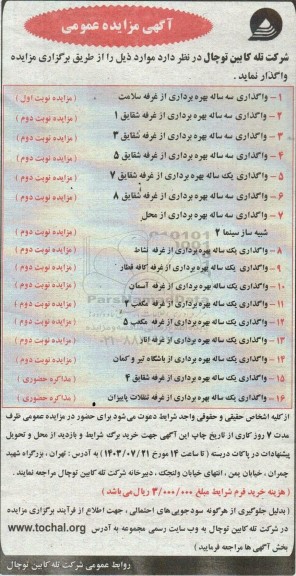 آگهی مزایده عمومی
شرکت تله کابین توچال در نظر دارد موارد ذیل را از طریق برگزاری مزایده
واگذار نماید .
۱- واگذاری سه ساله بهره برداری از غرفه سلامت (مزایده نوبت اول)
۲- واگذاری سه ساله بهره برداری از غرفه شقایق ۱ (مزایده نوبت دوم)
۳- واگذاری سه ساله بهره برداری از غرفه شقایق ۳ (مزایده نوبت دوم)
۴- واگذاری سه ساله بهره برداری از غرفه شقایق ۵ (مزایده نوبت دوم)
۵- واگذاری یک ساله بهره برداری از غرفه شقایق ۷ (مزایده نوبت دوم)
۶- واگذاری سه ساله بهره برداری از غرفه شقایق ۸ (مزایده نوبت دوم)
۷- واگذاری سه ساله بهره برداری از محل
شبیه ساز سینما ۲ (مزایده نوبت دوم)
۸- واگذاری یک ساله بهره برداری از غرفه نشاط (مزایده نوبت دوم)
۹- واگذاری یک ساله بهره برداری از غرفه کافه قطار (مزایده نوبت دوم)
۱۰- واگذاری یک ساله بهره برداری از غرفه آسمان (مزایده نوبت دوم)
۱۱- واگذاری یک ساله بهره برداری از غرفه مکعب ۲ (مزایده نوبت دوم)
۱۲- واگذاری یک ساله بهره برداری از غرفه مکعب ۵ (مزایده نوبت دوم)
۱۳- واگذاری یک ساله بهره برداری از غرفه انار (مزایده نوبت دوم)
۱۴- واگذاری یک ساله بهره برداری از باشگاه تیر و کمان (مزایده نوبت دوم)
۱۵- واگذاری یک ساله بهره برداری از غرفه شقایق ۴ (مذاکره حضوری)
۱۶- واگذاری یک ساله بهره برداری از غرفه تنقلات پاییزان (مذاکره حضوری)
از کلیه اشخاص حقیقی و حقوقی واجد شرایط دعوت می شود برای حضور در مزایده عمومی ظرف
مدت ۷ روز کاری از تاریخ چاپ این آگهی جهت خرید برگ شرایط و بازدید از محل و تحویل
پیشنهادات در پاکات دربسته (تا ساعت ۱۴ مورخ ۱۴۰۳/۰۷/۲۱) به آدرس : تهران ، بزرگراه شهید
چمران ، خیابان یمن ، انتهای خیابان ولنجک ، دبیرخانه شرکت تله کابین توچال مراجعه نمایند .
(هزینه خرید فرم شرایط مبلغ ۳/۰۰۰/۰۰۰ ریال می باشد)
(بدلیل جلوگیری از هرگونه سودجویی های احتمالی ، جهت اطلاع از فرآیند برگزاری مزایده
در شرکت تله کابین توچال به وب سایت رسمی مجموعه به آدرس www.tochal.org
بخش آگهی ها مراجعه فرمایید)
روابط عمومی شرکت تله کابین توچال